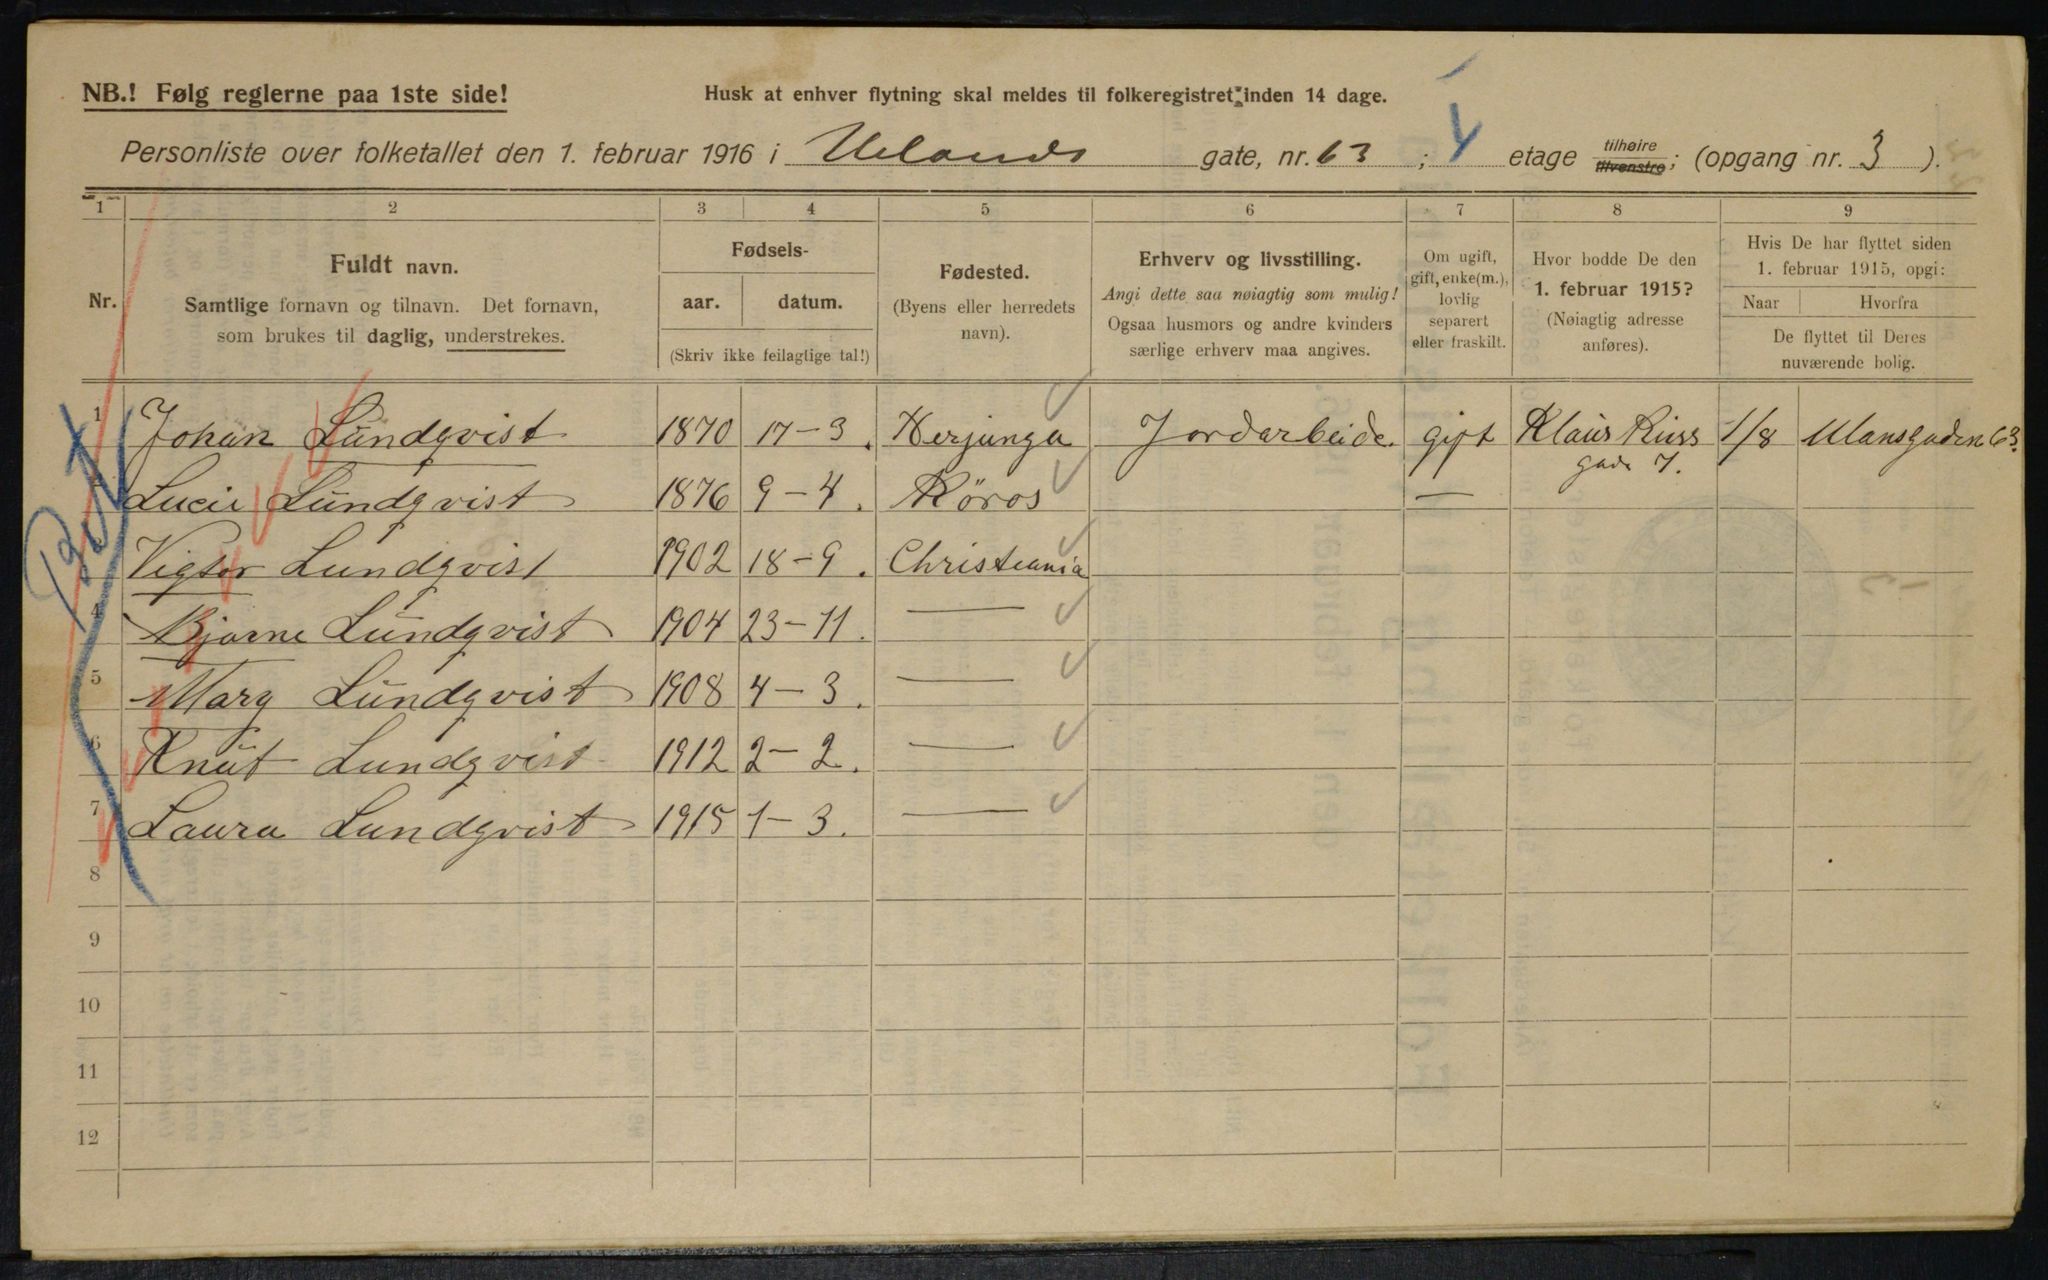 NB.! Følg reglerne paa 1ste side!
Husk at enhver flytning skal meldes til folkeregistret inden 14 dage.
Personliste over folketallet den 1. februar 1916 i Uelands gate, nr. 63 ; 4 etage tilhøire tilvenstre; (opgang nr. 3 ).
1 2 3 4 5 6 7 8 9
Nr.
Fuldt navn.
Samtlige fornavn og tilnavn. Det fornavn,
som brukes til daglig, understrekes.
Fødsels-
aar. datum.
(Skriv ikke feilagtige tal!)
Fødested.
(Byens eller herredets
navn).
Erhverv og livsstilling.
Angi dette saa nøiagtig som mulig!
Ogsaa husmors og andre kvinders
særlige erhverv maa angives.
Om ugift,
gift, enke(m.),
lovlig
separert
eller fraskilt.
Hvor bodde De den
1. februar 1915?
(Nøiagtig adresse
anføres).
Hvis De har flyttet siden
1. februar 1915, opgi:
Naar Hvorfra
De flyttet til Deres
nuværende bolig.
1 Johan Lundqvist 1870 17-3. Herjunga Jordarbeide gift Klaus Riiss 1/8 Ulansgaden 63.
gade 7.
Lucie Lundqvist 1876 9-4. Röros —
Vigtor Lundqvist 1902 18-9. Christiania
4 Bjarne Lundqvist 1904 23-11. —
5 Mary Lundqvist 1908 4-3. —
6 Knut Lundqvist 1912 2-2. —
7 Laura Lundqvist 1915 1-3. —
8
9
10
11
12